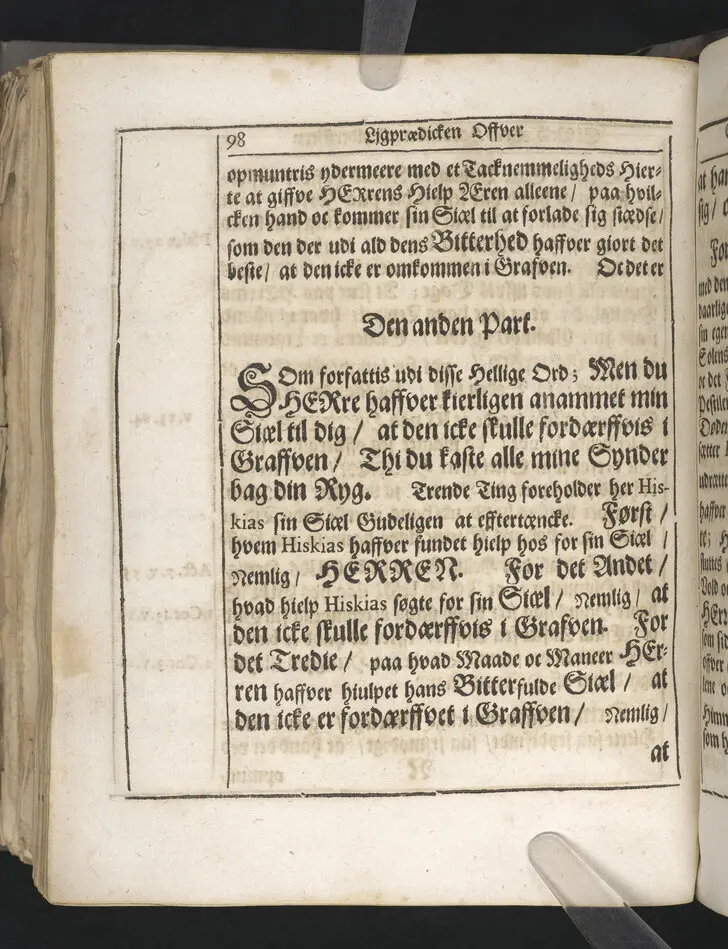 98
Ljgprædicken Offver
opmuntris ydermeere med et Tacknemmeligheds Hier-
te at giffve HERrens Hielp Æren alleene / paa hvil-
cken hand oc kommer sin Siæl til at forlade sig stædse /
som den der udi ald dens Bitterhed haffver giort det
beste / at den icke er omkommen i Grafven. Oc det er
Den anden Part.
SOm forfattis udi disse Hellige Ord; Men du
HERre haffver kierligen anammet min
Siæl til dig / at den icke skulle fordærffvis i
Graffven / Thi du kaste alle mine Synder
bag din Ryg. Trende Ting foreholder her His-
kias sin Siæl Gudeligen at efftertæncke. Først /
hvem Hiskias haffver fundet hielp hos for sin Siæl /
Nemlig / HERREN. For det Andet /
hvad hielp Hiskias søgte for sin Siæl / Nemlig / at
den icke skulle fordærffvis i Grafven. For
det Tredie / paa hvad Maade oc Maneer HEr-
ren haffver hiulpet hans Bitterfulde Siæl / at
den icke er fordærffvet i Graffven / Nemlig /
at